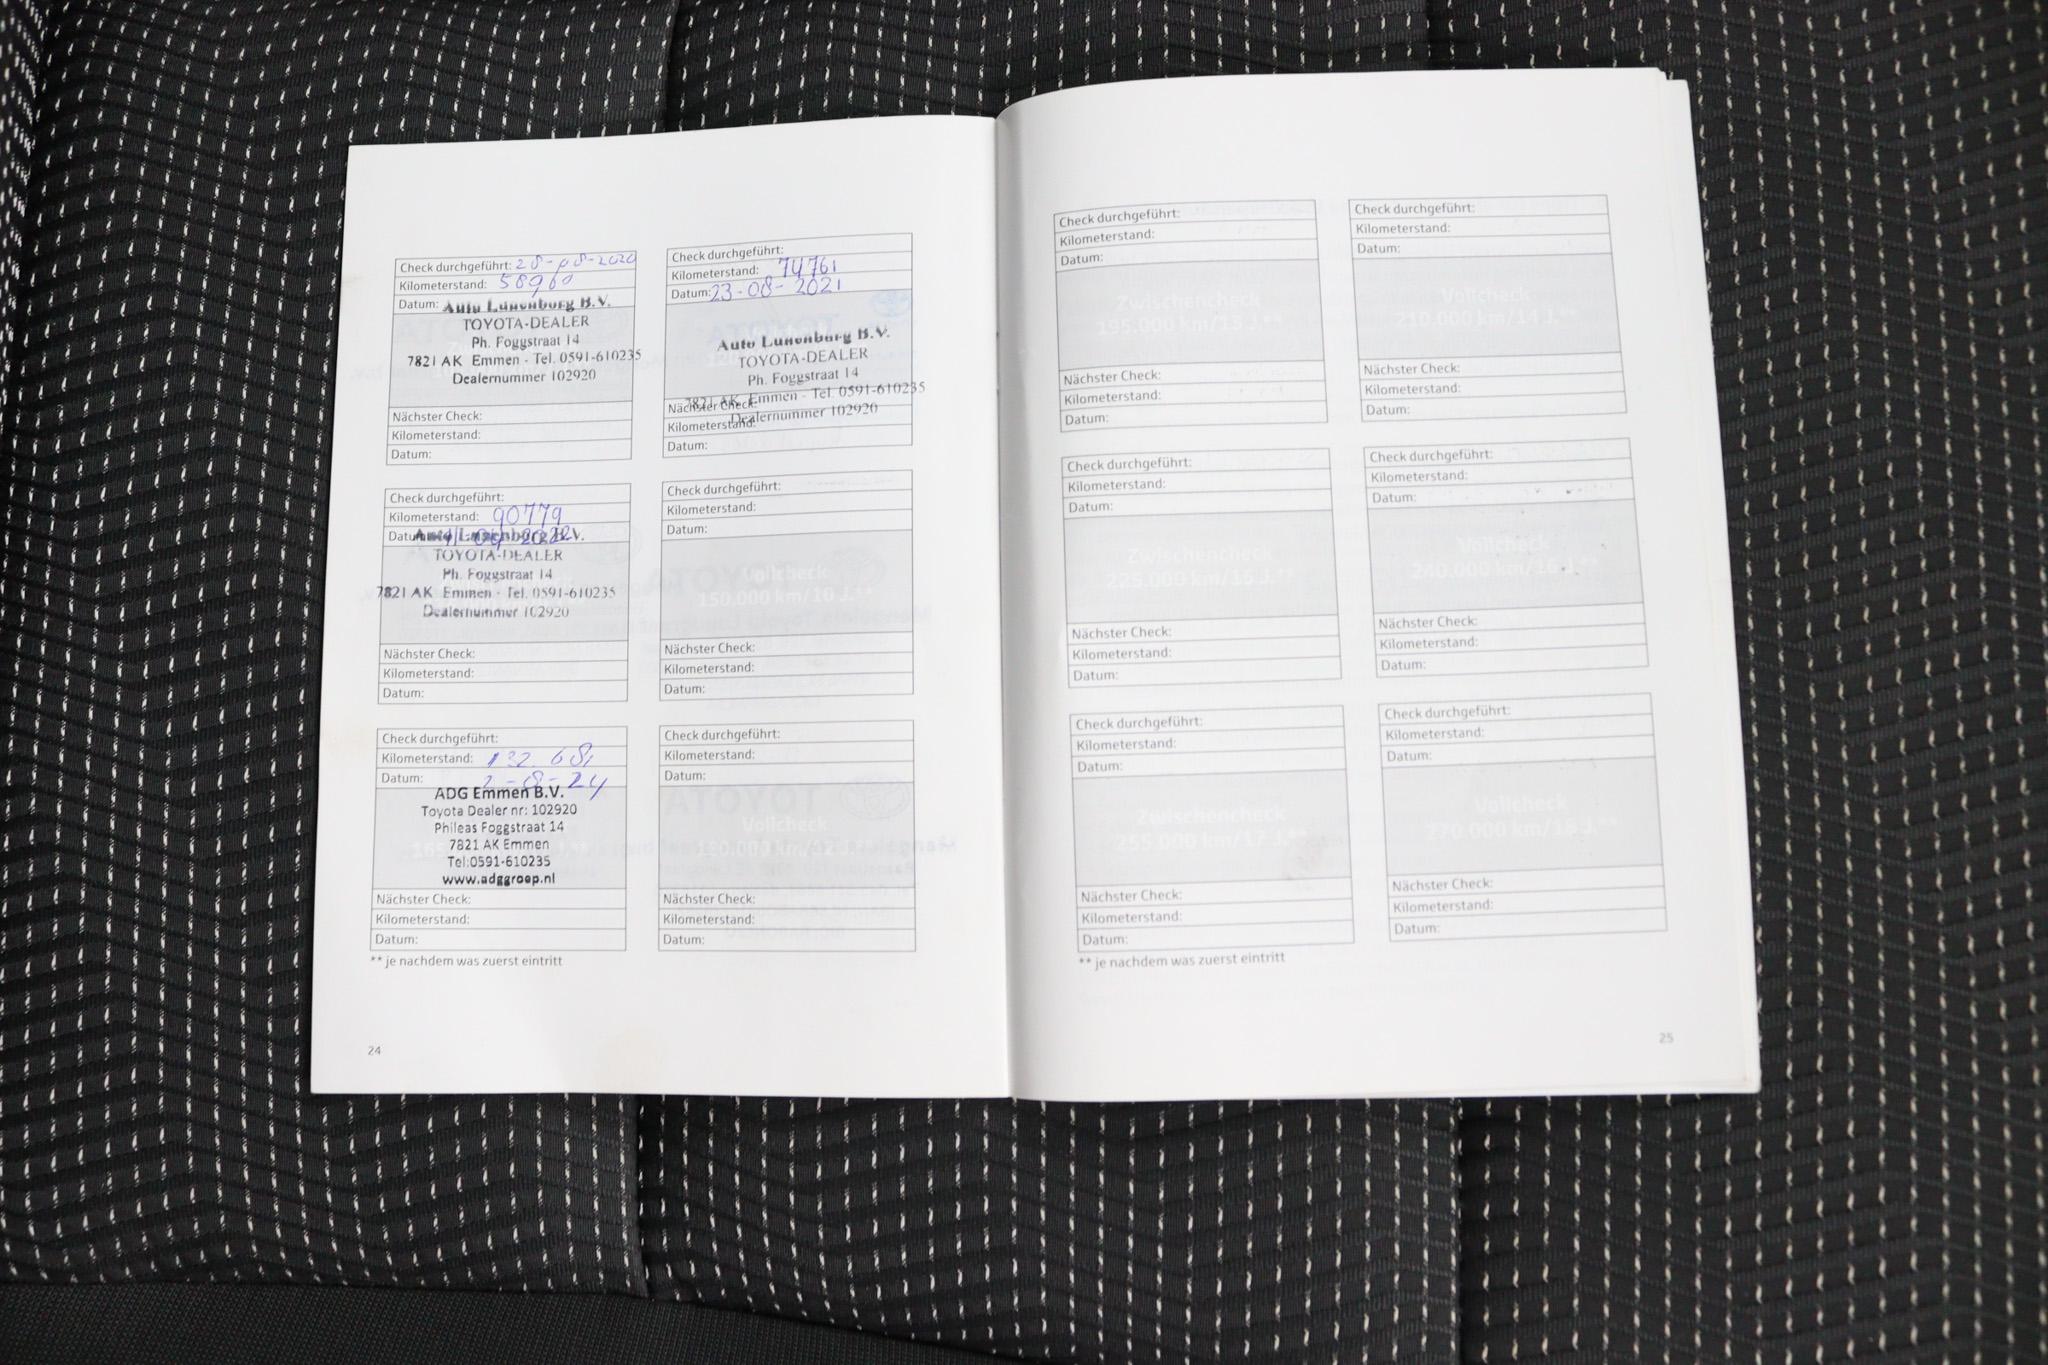 Check durchgeführt: 28-08-2020
Kilometerstand: 58960
Datum:
Auto Lunenborg B.V.
TOYOTA-DEALER
Ph. Foggstraat 14
7821 AK Emmen - Tel. 0591-610235
Dealernummer 102920
Nächster Check:
Kilometerstand:
Datum:
Check durchgeführt:
Kilometerstand: 74761
Datum: 23-08-2021
Auto Lunenborg B.V.
TOYOTA-DEALER
Ph. Foggstraat 14
7821 AK Emmen - Tel. 0591-610235
Dealernummer 102920
Nächster Check:
Kilometerstand:
Datum:
Check durchgeführt:
Kilometerstand: 90779
Datum: 2022
Auto Lunenborg B.V.
TOYOTA-DEALER
Ph. Foggstraat 14
7821 AK Emmen - Tel. 0591-610235
Dealernummer 102920
Nächster Check:
Kilometerstand:
Datum:
Check durchgeführt:
Kilometerstand:
Datum:
Vollcheck
150.000 km/10 J.**
Nächster Check:
Kilometerstand:
Datum:
Check durchgeführt:
Kilometerstand: 132.681
Datum: 2-8-24
ADG Emmen B.V.
Toyota Dealer nr: 102920
Phileas Foggstraat 14
7821 AK Emmen
Tel:0591-610235
www.adggroep.nl
Nächster Check:
Kilometerstand:
Datum:
** je nachdem was zuerst eintritt
Check durchgeführt:
Kilometerstand:
Datum:
Vollcheck
180.000 km/12 J.**
Nächster Check:
Kilometerstand:
Datum:
24
Check durchgeführt:
Kilometerstand:
Datum:
Zwischencheck
195.000 km/13 J.**
Nächster Check:
Kilometerstand:
Datum:
Check durchgeführt:
Kilometerstand:
Datum:
Vollcheck
210.000 km/14 J.**
Nächster Check:
Kilometerstand:
Datum:
Check durchgeführt:
Kilometerstand:
Datum:
Zwischencheck
225.000 km/15 J.**
Nächster Check:
Kilometerstand:
Datum:
Check durchgeführt:
Kilometerstand:
Datum:
Vollcheck
240.000 km/16 J.**
Nächster Check:
Kilometerstand:
Datum:
Check durchgeführt:
Kilometerstand:
Datum:
Zwischencheck
255.000 km/17 J.**
Nächster Check:
Kilometerstand:
Datum:
** je nachdem was zuerst eintritt
Check durchgeführt:
Kilometerstand:
Datum:
Vollcheck
270.000 km/18 J.**
Nächster Check:
Kilometerstand:
Datum:
25